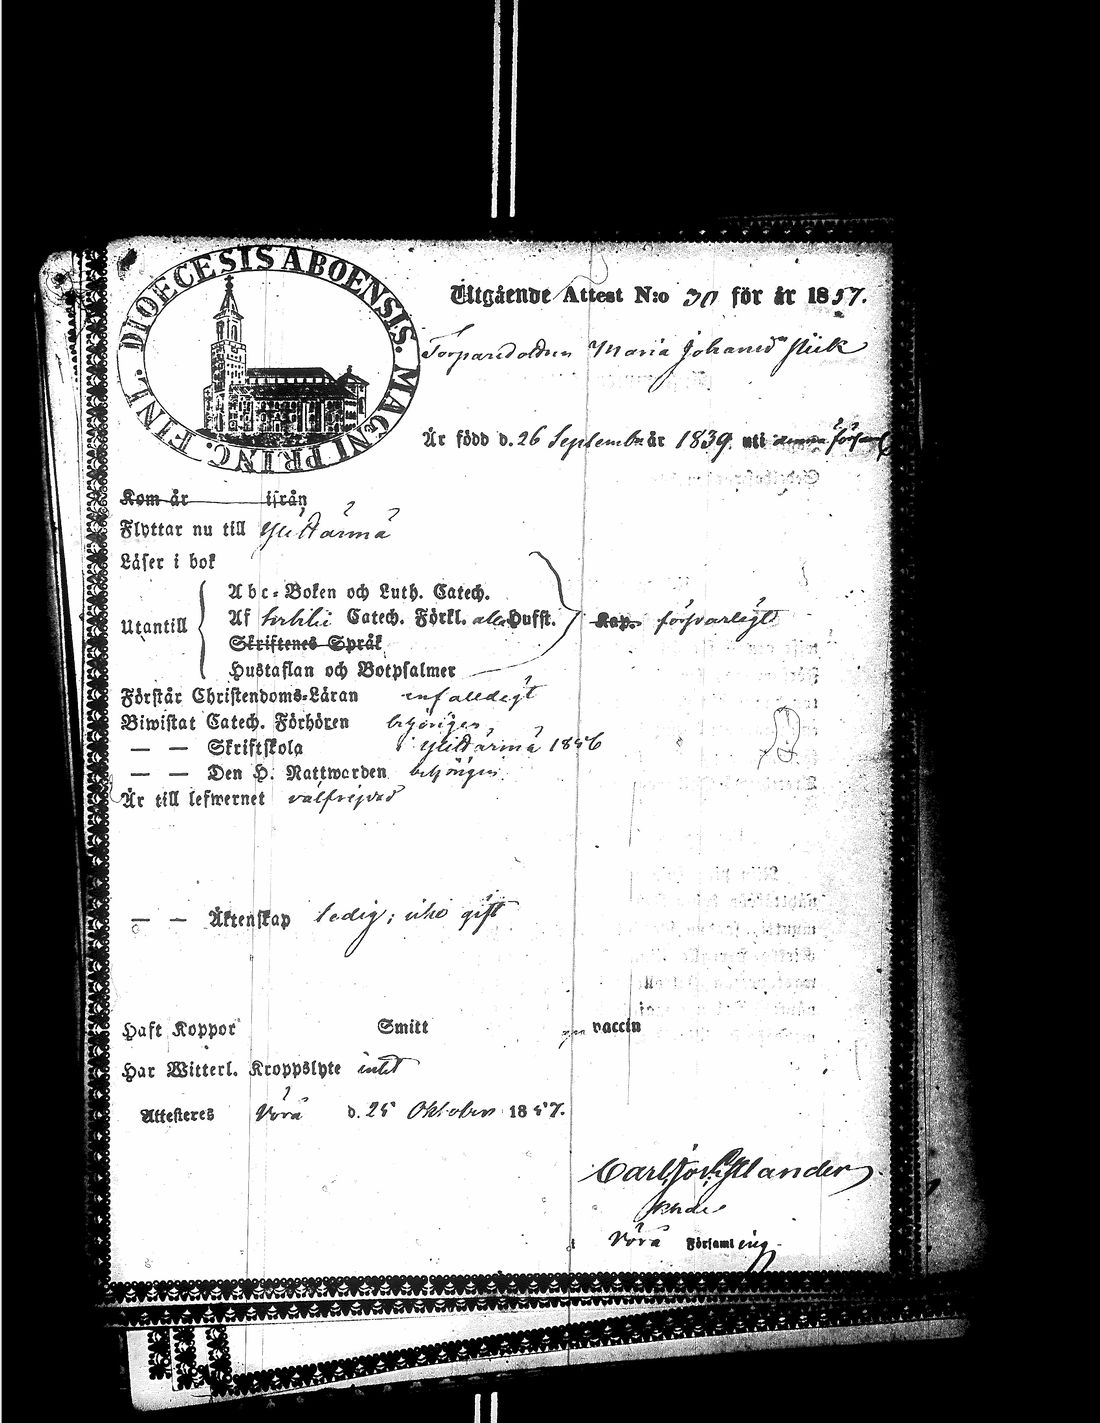 DIOECESIS ABOENSIS. MAGNI PRINC. FINL.
Utgående Attest N:o 30 för år 1857.
Maria Johansd:r
Är född d. 26 September år 1839. uti denna förs
Kom år ifrån
Flyttar nu till Ylihärmä
Läser i bok
Abc-Boken och Luth. Catech.
Utantill Af Catech. Förkl. alla Hufst. Kap. försvarligt
Skriftenes Språk
Hustaflan och Botpsalmer
Förstår Christendoms-Läran enfaldigt
Biwistat Catech. Förhören behörigen
— — Skriftskola i Ylihärmä 1856
— — Den H. Nattwarden behörigen
Är till lefwernet välfrejdad
— — Äktenskap ledig; icke gift
Haft Koppor Smitt vaccin
Har Witterl. Kroppslyte intet
Attesteres Vörå d. 25 Oktober 1857.
Carl
Vörå Församling.